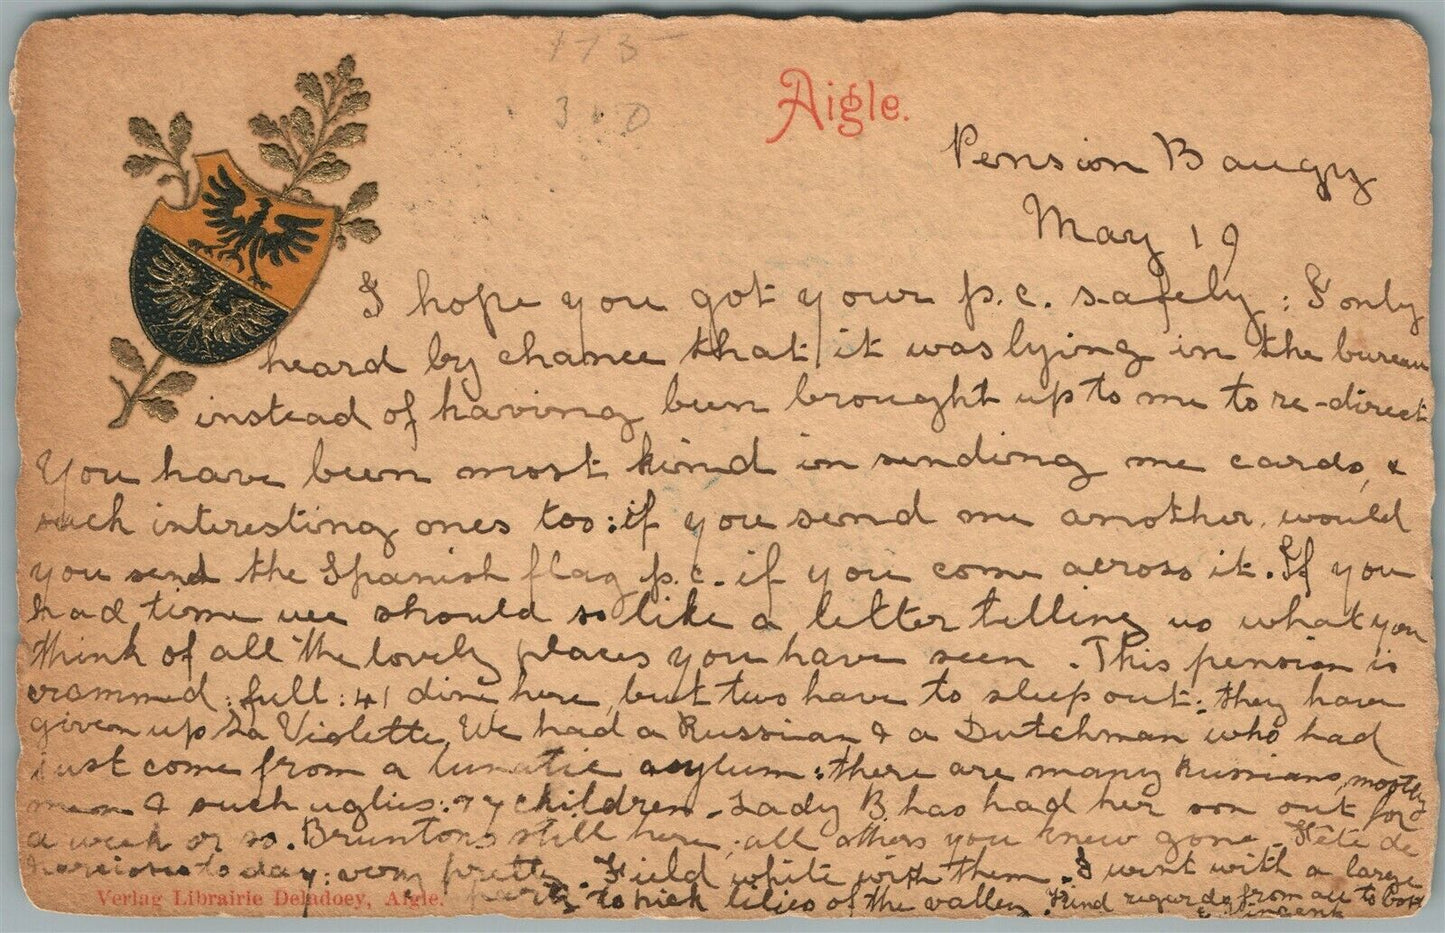 175
300
Aigle.
Pension Baugy
May 19
I hope you got your p.c. safely : I only
heard by chance that it was lying in the bureau
instead of having been brought up to me to re-direct
You have been most kind in sending me cards, &
such interesting ones too : if you send me another, would
you send the Spanish flag p.c. if you come across it. If you
had time we should so like a letter telling us what you
think of all the lovely places you have seen. This pension is
crammed : full : 41 dine here, but two have to sleep out : they have
given up La Violette. We had a Russian & a Dutchman who had
just come from a lunatic asylum : there are many Russians, mostly
men & such uglies : 7 children. Lady B has had her son out for
a week or so. Bruntons still here, all others you knew gone. Fête de
Narcisses to day : very pretty. Field white with them. I went with a large
party to pick lilies of the valley. Kind regards from all to both
E Vincent
Verlag Librairie Deladoey, Aigle.